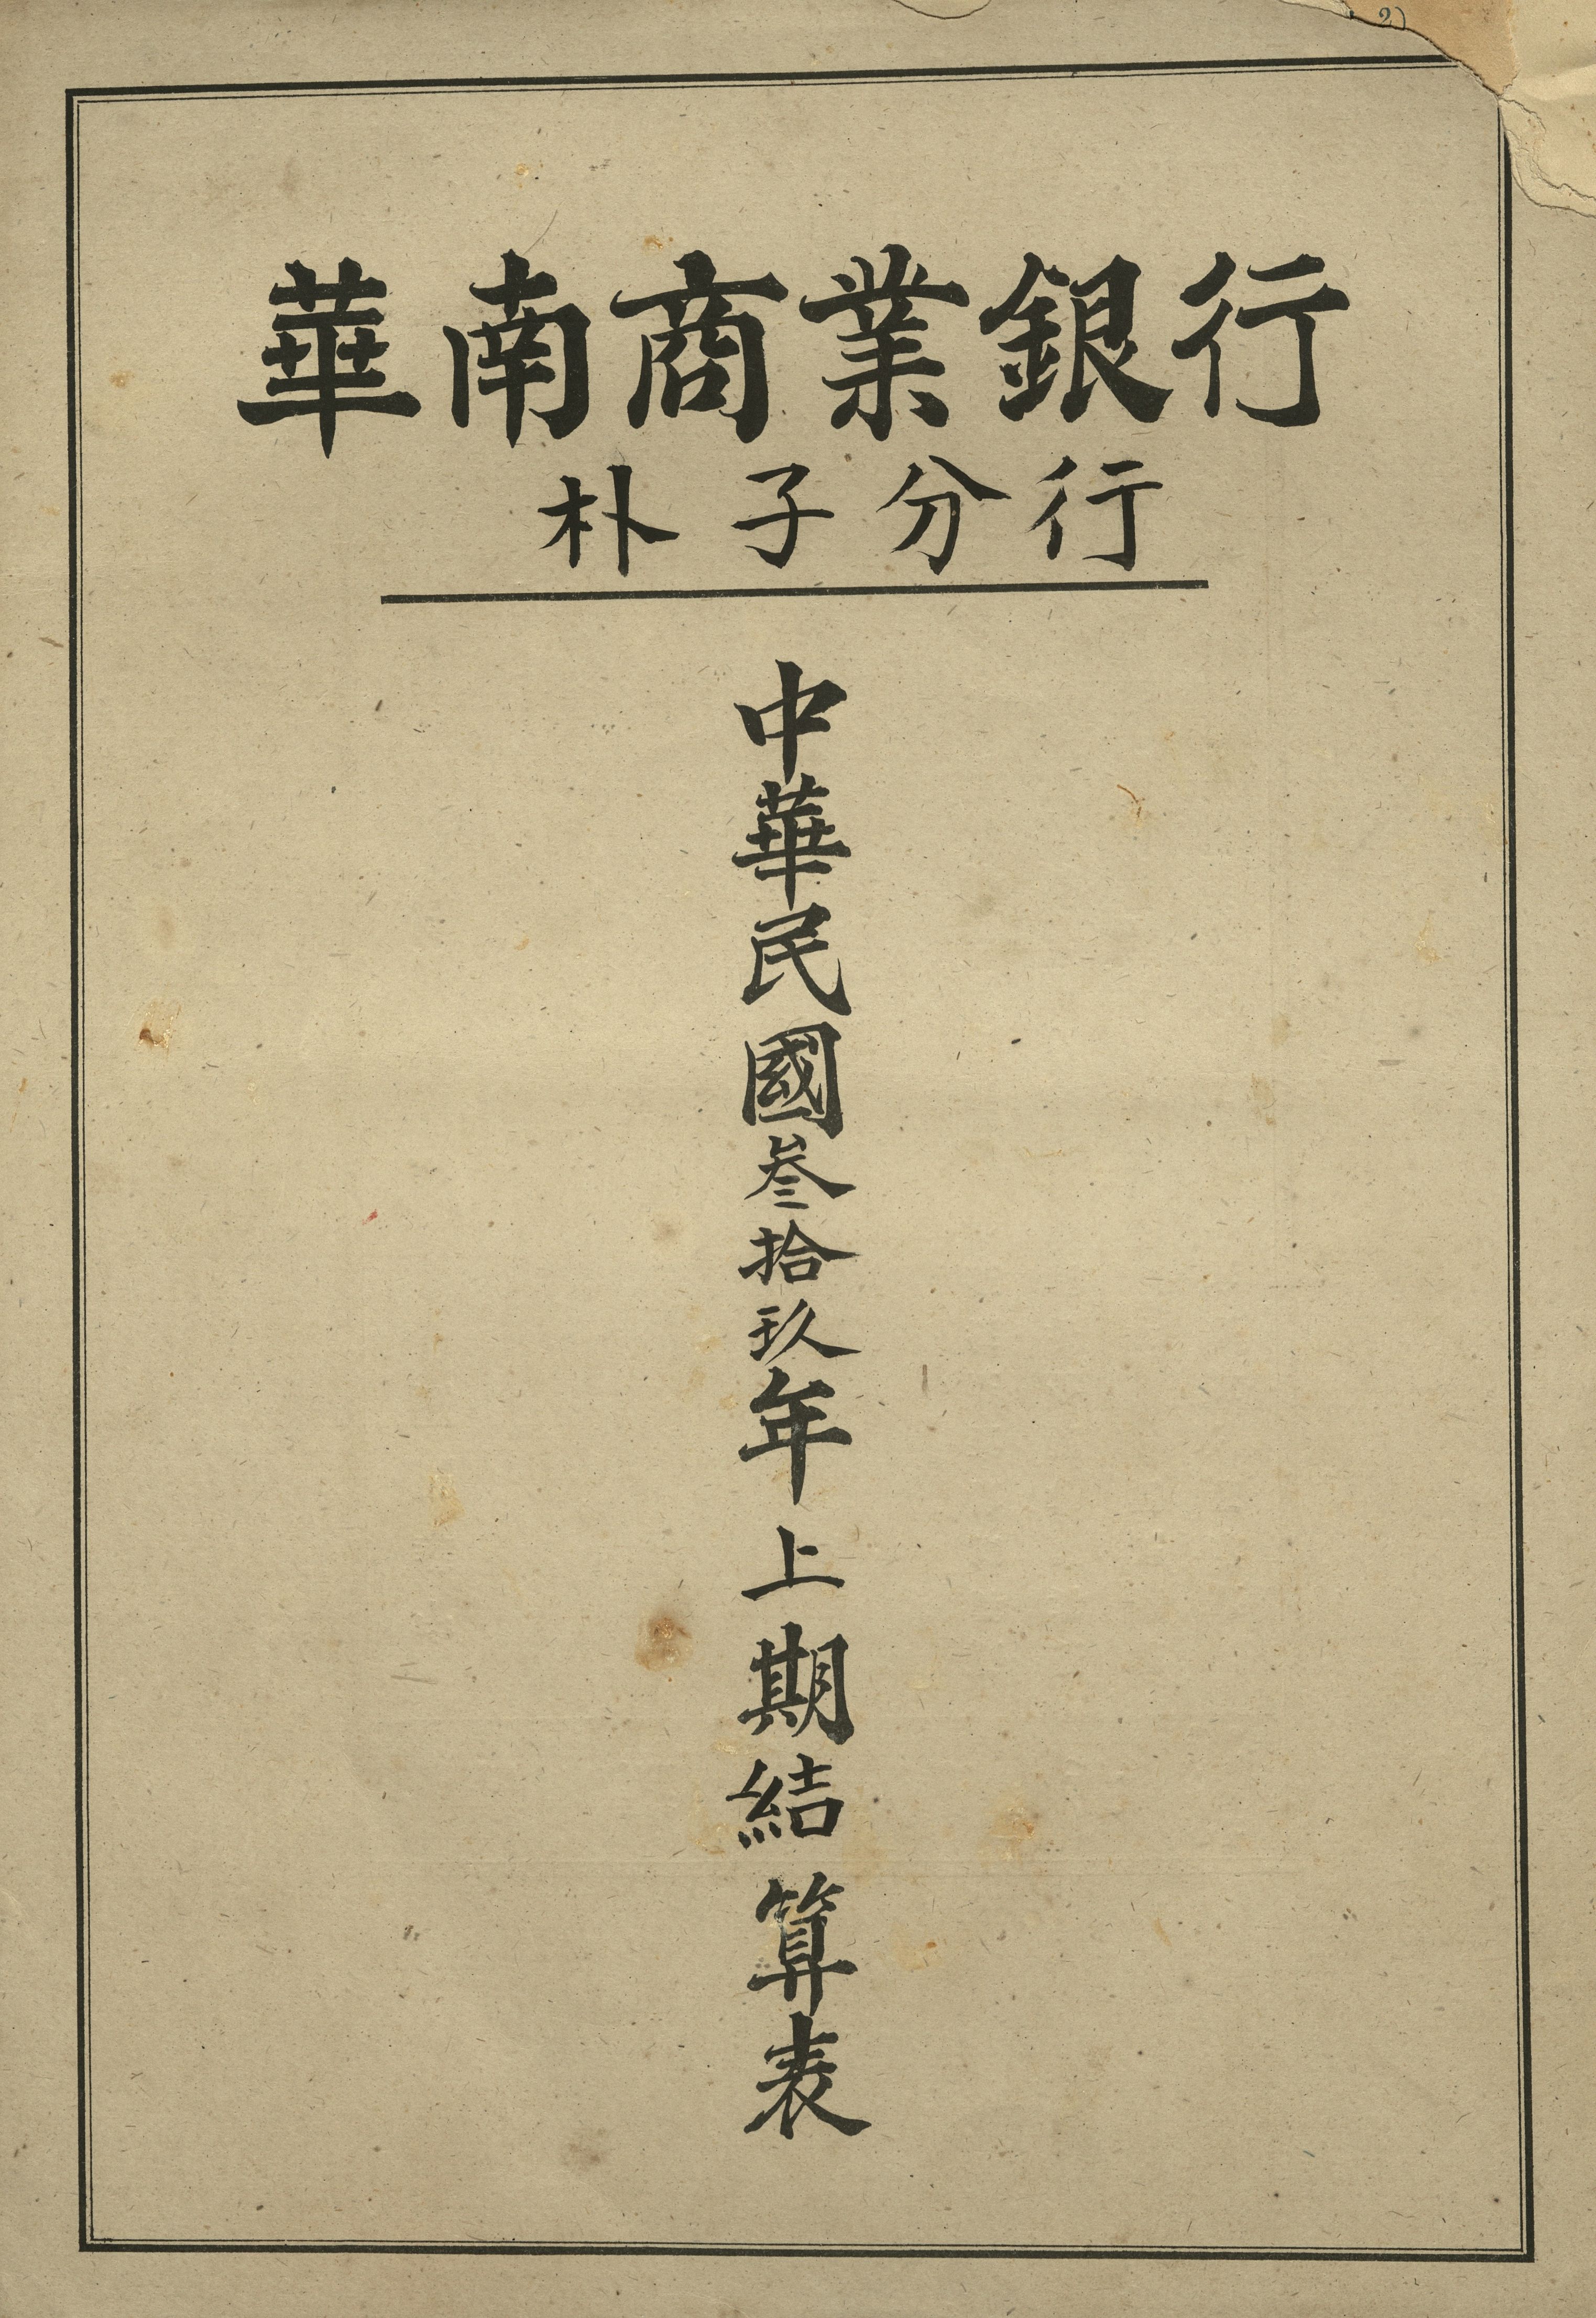 2)
華南商業銀行
朴子分行
中華民國叁拾玖年上期結算表